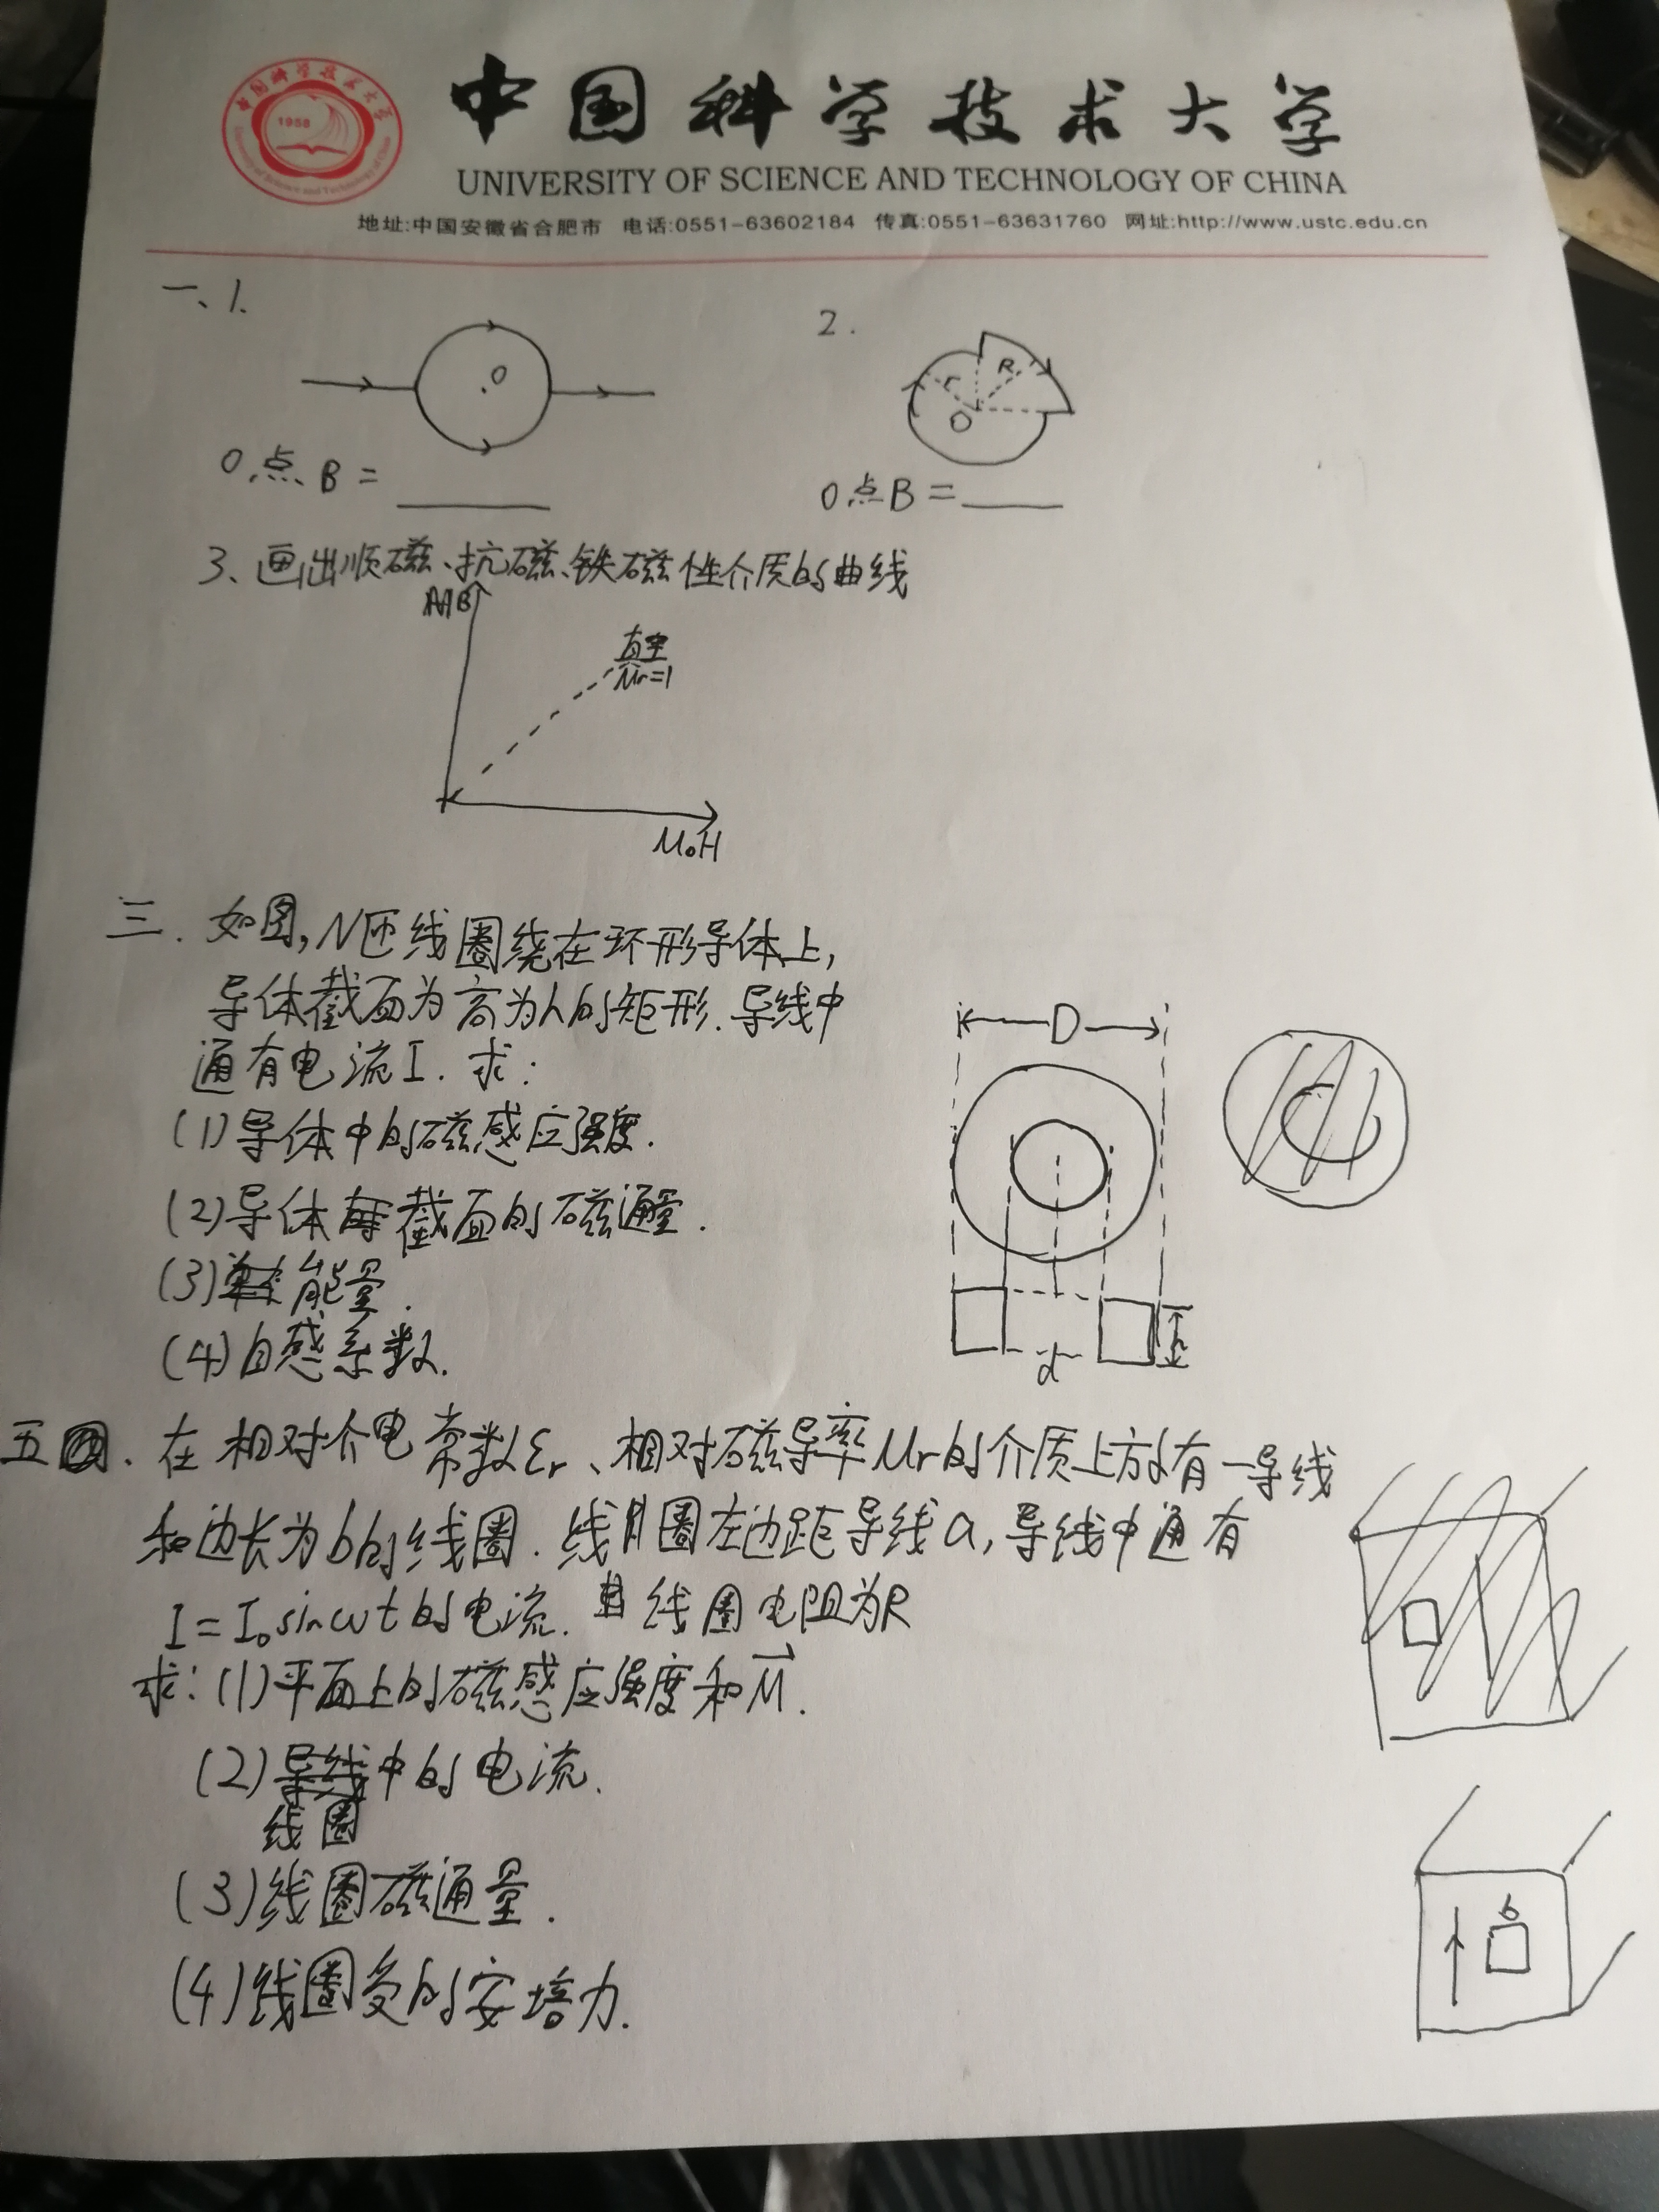 中国科学技术大学
UNIVERSITY OF SCIENCE AND TECHNOLOGY OF CHINA
地址:中国安徽省合肥市 电话:0551-63602184 传真:0551-63631760 网址:http://www.ustc.edu.cn
中国科学技术大学
1958
University of Science and Technology of China
一、1.
O
O点 B =
2.
r
R
O
O点B =
3、画出顺磁、抗磁、铁磁性介质的曲线
B
真空
μr=1
μ₀H
三. 如图,N匝线圈绕在环形导体上,
导体截面为高为h的矩形. 导线中
通有电流I. 求:
(1)导体中的磁感应强度.
(2)导体截面的磁通量.
(3)能量.
(4)自感系数.
D
d
h
五. 在相对介电常数εr、相对磁导率μr的介质上方有一导线
和边长为b的线圈. 线圈左边距导线a,导线中通有
I = I₀sinωt的电流. 线圈电阻为R
求:(1)平面上的磁感应强度和M.
(2)线圈中的电流.
(3)线圈磁通量.
(4)线圈受的安培力.
b